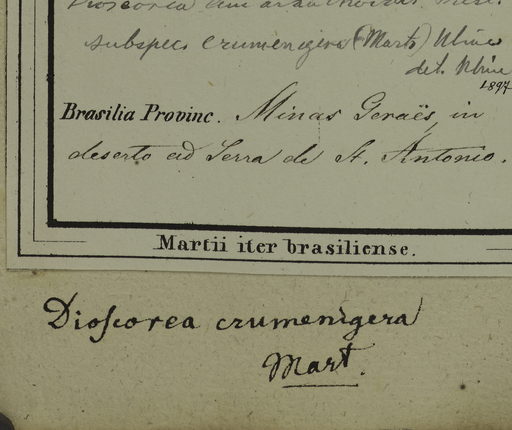 Dioscorea
subspec. crumenigera (Mart.) Uline
det. Uline
1897
Brasilia Provinc. Minas Geraës, in
deserto ad Serra de St. Antonio.
Martii iter brasiliense.
Dioſcorea crumenigera
Mart.